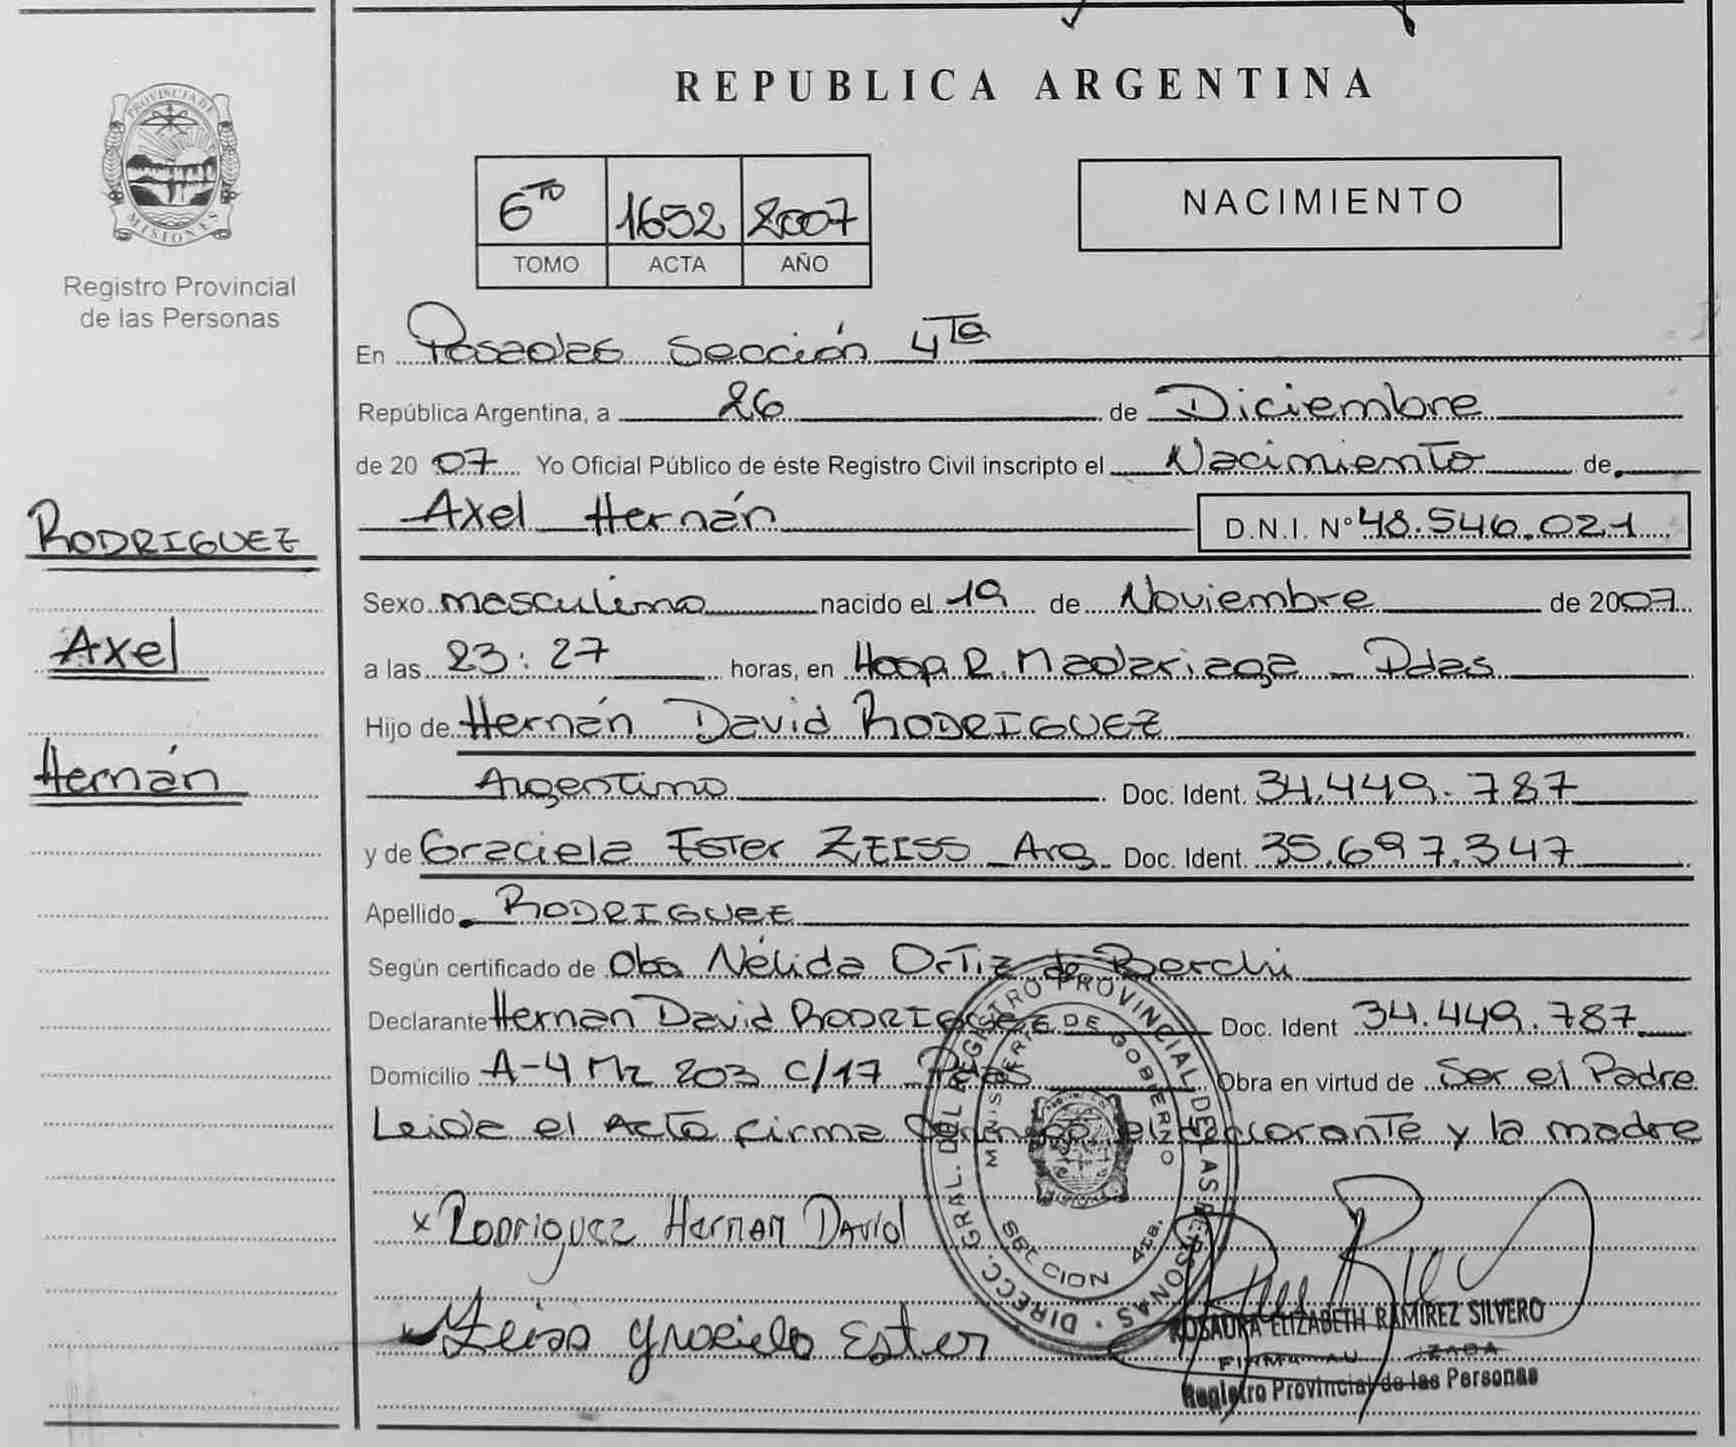 PROVINCIA DE
MISIONES
Registro Provincial
de las Personas
RODRIGUEZ
Axel
Hernán
REPUBLICA ARGENTINA
6TO 1652 2007
TOMO ACTA AÑO
NACIMIENTO
En Posadas Sección 4ta
República Argentina, a 26 de Diciembre
de 2007 Yo Oficial Público de éste Registro Civil inscripto el Nacimiento de
Axel Hernán D.N.I. Nº 48.546.021
Sexo masculino nacido el 19 de Noviembre de 2007
a las 23:27 horas, en Hosp. R. Madariaga - Pdas
Hijo de Hernán David RODRIGUEZ
Argentino Doc. Ident. 34.449.787
y de Graciela Ester ZEISS Arg. Doc. Ident. 35.697.347
Apellido RODRIGUEZ
Según certificado de Obs Nélida Ortiz de Berchi
Declarante Hernan David RODRIGUEZ Doc. Ident 34.449.787
Domicilio A-4 Mz 203 C/17 Pdas Obra en virtud de Ser el Padre
Leida el Acta firma conmigo el declarante y la madre
x Rodriguez Hernan David
Zeiss Graciela Ester
DIRECC. GRAL. DEL REGISTRO PROVINCIAL DE LAS PERSONAS
MINISTERIO DE GOBIERNO
SECCION 4ta.
ROSAURA ELIZABETH RAMIREZ SILVERO
Registro Provincial de las Personas